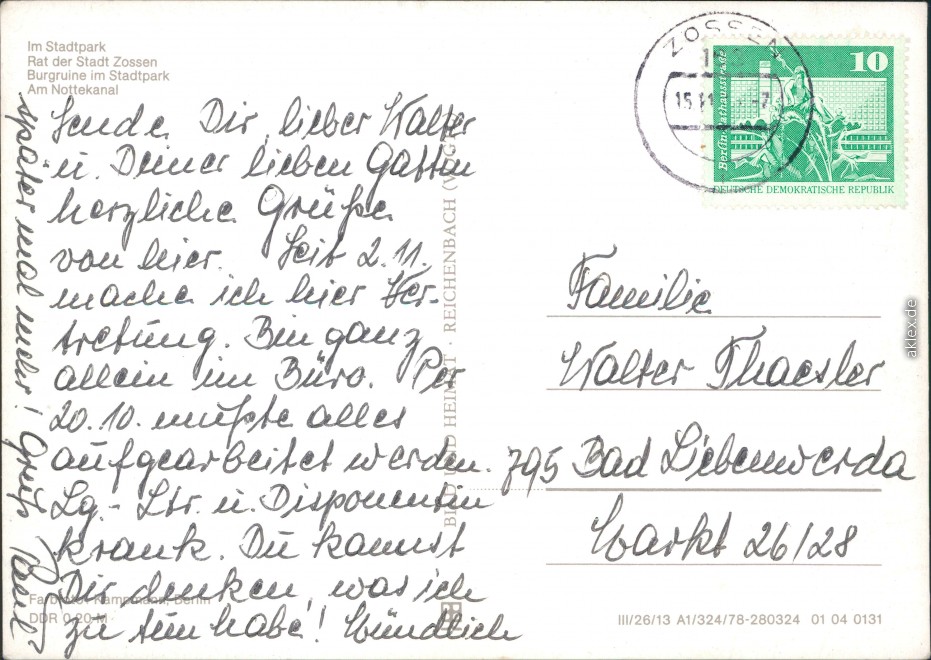 Im Stadtpark
Rat der Stadt Zossen
Burgruine im Stadtpark
Am Nottekanal
Sende Dir, lieber Walter
u. Deiner lieben Gattin
herzliche Grüße
von hier. Seit 2.11.
mache ich hier Ver-
tretung. Bin ganz
allein im Büro. Per
20.10. mußte alles
aufgearbeitet werden.
Lg.-Ltr. u. Disponentin
krank. Du kannst
Dir denken, was ich
zu tun habe! Mündlich
später mal mehr! Gruß
Farbfoto: Kampmann, Berlin
DDR 0,20 M
BILD UND HEIMAT · REICHENBACH (VOGTL)
ZOSSEN
15.11
10
Berlin, Rathausstraße
DEUTSCHE DEMOKRATISCHE REPUBLIK
Familie
Walter Thaesler
795 Bad Liebenwerda
Markt 26/28
III/26/13 A1/324/78-280324 01 04 0131
aklex.de